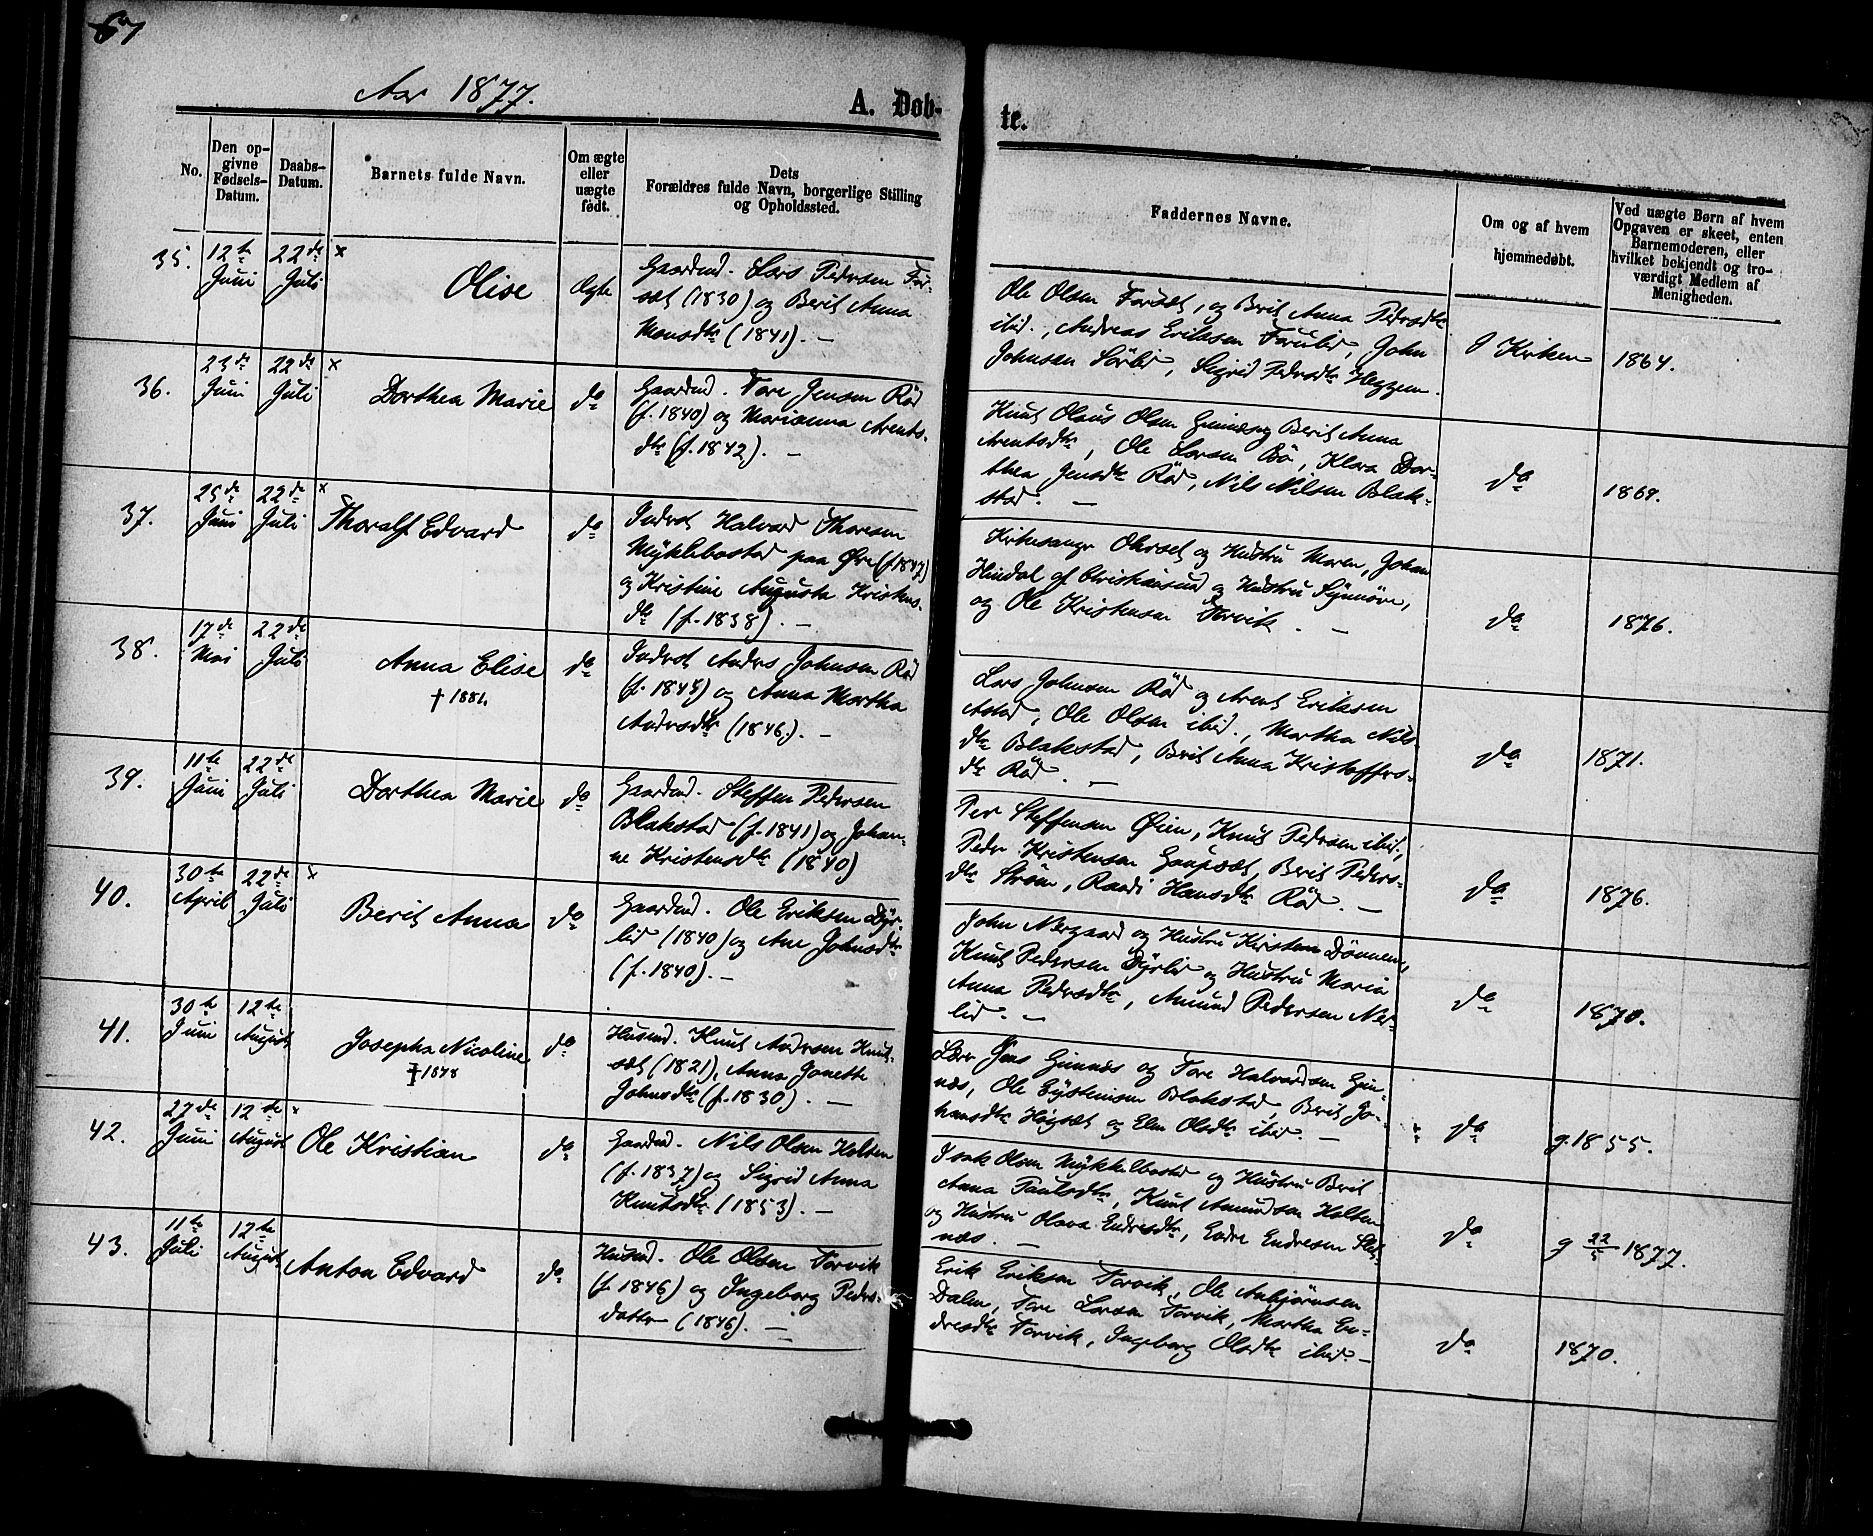 67
Aar 1877.
A. Døb-
te.
No.
Den opgivne Fødsels-Datum.
Daabs-Datum.
Barnets fulde Navn.
Om ægte eller uægte født.
Dets Forældres fulde Navn, borgerlige Stilling og Opholdssted.
Faddernes Navne.
Om og af hvem hjemmedøbt.
Ved uægte Børn af hvem Opgaven er skeet, enten Barnemoderen, eller hvilket bekjendt og troværdigt Medlem af Menigheden.
35. 12te Juni 22de Juli × Olise Ægte
Gaardmd. Lars Pedersen For-
sæt (1830) og Berit Anna
Monsdtr (1841). —
Ole Olsen Forsæt, og Berit Anna Pedersdtr
ibid., Andreas Eriksen Furulid, John
Johnsen Sørlid, Sigrid Pedersdtr Heggem.
I Kirken 1864.
36. 23de Juni 22de Juli × Dorthea Marie do
Gaardmd. Tore Jensen Rød
(f. 1840) og Marianna Arents-
dtr (f. 1842). —
Knut Olaus Olsen Gimnæs og Berit Anna
Arentsdtr, Ole Larsen Bø, Klara Dor-
thea Jensdtr Rød, Nils Nilsen Blak-
stad. —
do 1869.
37. 25de Juni 22de Juli × Thoralf Edvard do
Indrst Halvard Thoresen
Myklebostad paa Øre (f. 1847)
og Kristine Augusta Kristens-
dtr (f. 1838). —
Kirkesanger Ohrset og Hustru Maren, Johan
Hindal af Christiansund og Hustru Synnöve,
og Ole Kristensen Torvik. —
do 1876.
38. 17de Mai 22de Juli Anna Elise do
† 1881.
Indrst Anders Johnsen Rød
(f. 1845) og Anna Martha
Andersdtr (1846). —
Lars Johnsen Rød og Arent Eriksen
Astad, Ole Olsen ibid., Martha Nils-
dtr Blakstad, Brit Anna Kristoffers-
dtr Rød. —
do 1871.
39. 11te Juni 22de Juli Dorthea Marie do
Gaardmd. Steffen Pedersen
Blakstad (f. 1841) og Johan-
ne Kristensdtr (1840)
Per Steffensen Øien, Knut Pedersen ibid.,
Peder Kristensen Gaupset, Berit Peders-
dtr Strøm, Randi Hansdtr Rød. —
do 1876.
40. 30te April 22de Juli × Berit Anna do
Gaardmd. Ole Eriksen Dyr-
lid (1840) og Ane Johnsdtr
(f. 1840). —
John Nergaard og Hustru Kirsten Dønnem,
Knut Pedersen Dyrlid og Hustru Maria
Anna Pedersdtr, Amund Pedersen Ner-
lid. —
do 1870.
41. 30te Juni 12te August Josepha Nicoline do
† 1878
Husmd. Knut Andersen Knut-
sæt (1821), Anna Jonetta
Johnsdtr (f. 1830). —
Lærer Jens Gimnæs og Tore Halvardsen Gim-
næs, Ole Eysteinsen Blakstad, Berit Jo-
hansdtr Høgset og Elen Olsdtr ibid. —
do g. 1855.
42. 27de Juni 12te August × Ole Kristian do
Gaardmd. Nils Olsen Holten
(f. 1837) og Sigrid Anna
Knutsdtr (1853). —
Isak Olsen Mykkelbostad og Hustru Berit
Anna Paulsdtr, Knut Amundsen Holten
og Hustru Olava Endresdtr, Endre Endresen Slet-
næs. —
do g 22/5 1877.
43. 11te Juli 12te August Anton Edvard do
Husmd. Ole Olsen Torvik
(f. 1846) og Ingeborg Peders-
datter (1846). —
Erik Eriksen Torvik, Ole Anbjørnsen
Dalen, Tore Larsen Torvik, Martha En-
dresdtr Torvik, Ingeborg Olsdtr ibid. —
do 1870.